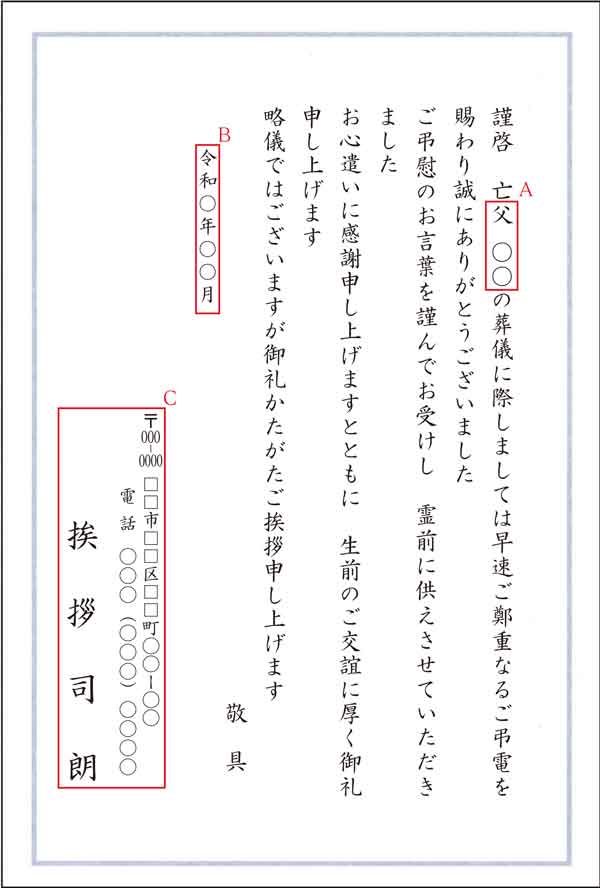 謹啓　亡父　〇〇の葬儀に際しましては早速ご鄭重なるご弔電を
賜わり誠にありがとうございました
ご弔慰のお言葉を謹んでお受けし　霊前に供えさせていただき
ました
お心遣いに感謝申し上げますとともに　生前のご交誼に厚く御礼
申し上げます
略儀ではございますが御礼かたがたご挨拶申し上げます
敬具
令和〇年〇〇月
〒000-0000　□□市□□区□□町〇〇ー〇〇
電話　〇〇〇（〇〇〇）〇〇〇〇
挨拶司朗
A
B
C